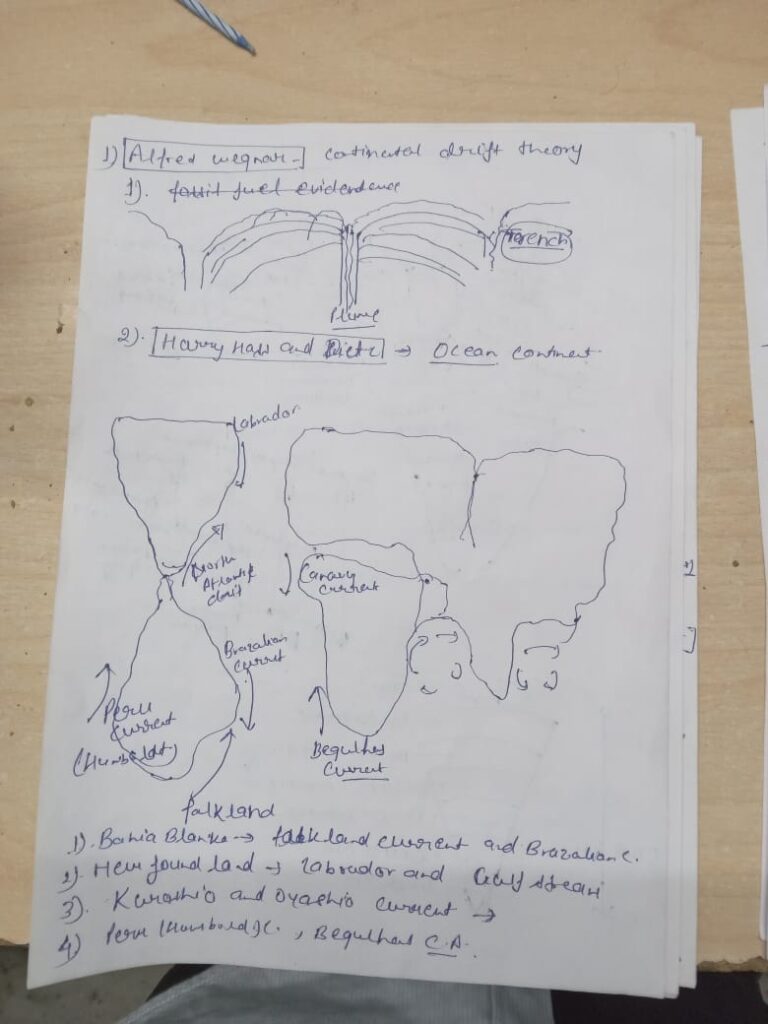 1) Alfred wegnar - cotinetal drift theory
1). fossil fuel evidendence
Trench
Plume
2). Harry Hass and Dietz → Ocean continent
Labrador
North
Atlantic
drift
Canary
current
Brazalian
Curret
Peru
Current
(Humboldt)
Begulhas
Current
falkland
1). Bahia Blanka → falkland current and Brazalian C.
2). New found land → Labrador and Gulf stream
3). Kuroshio and Oyashio current →
4) Peru (Humbold)C. , Begulhas C.A.